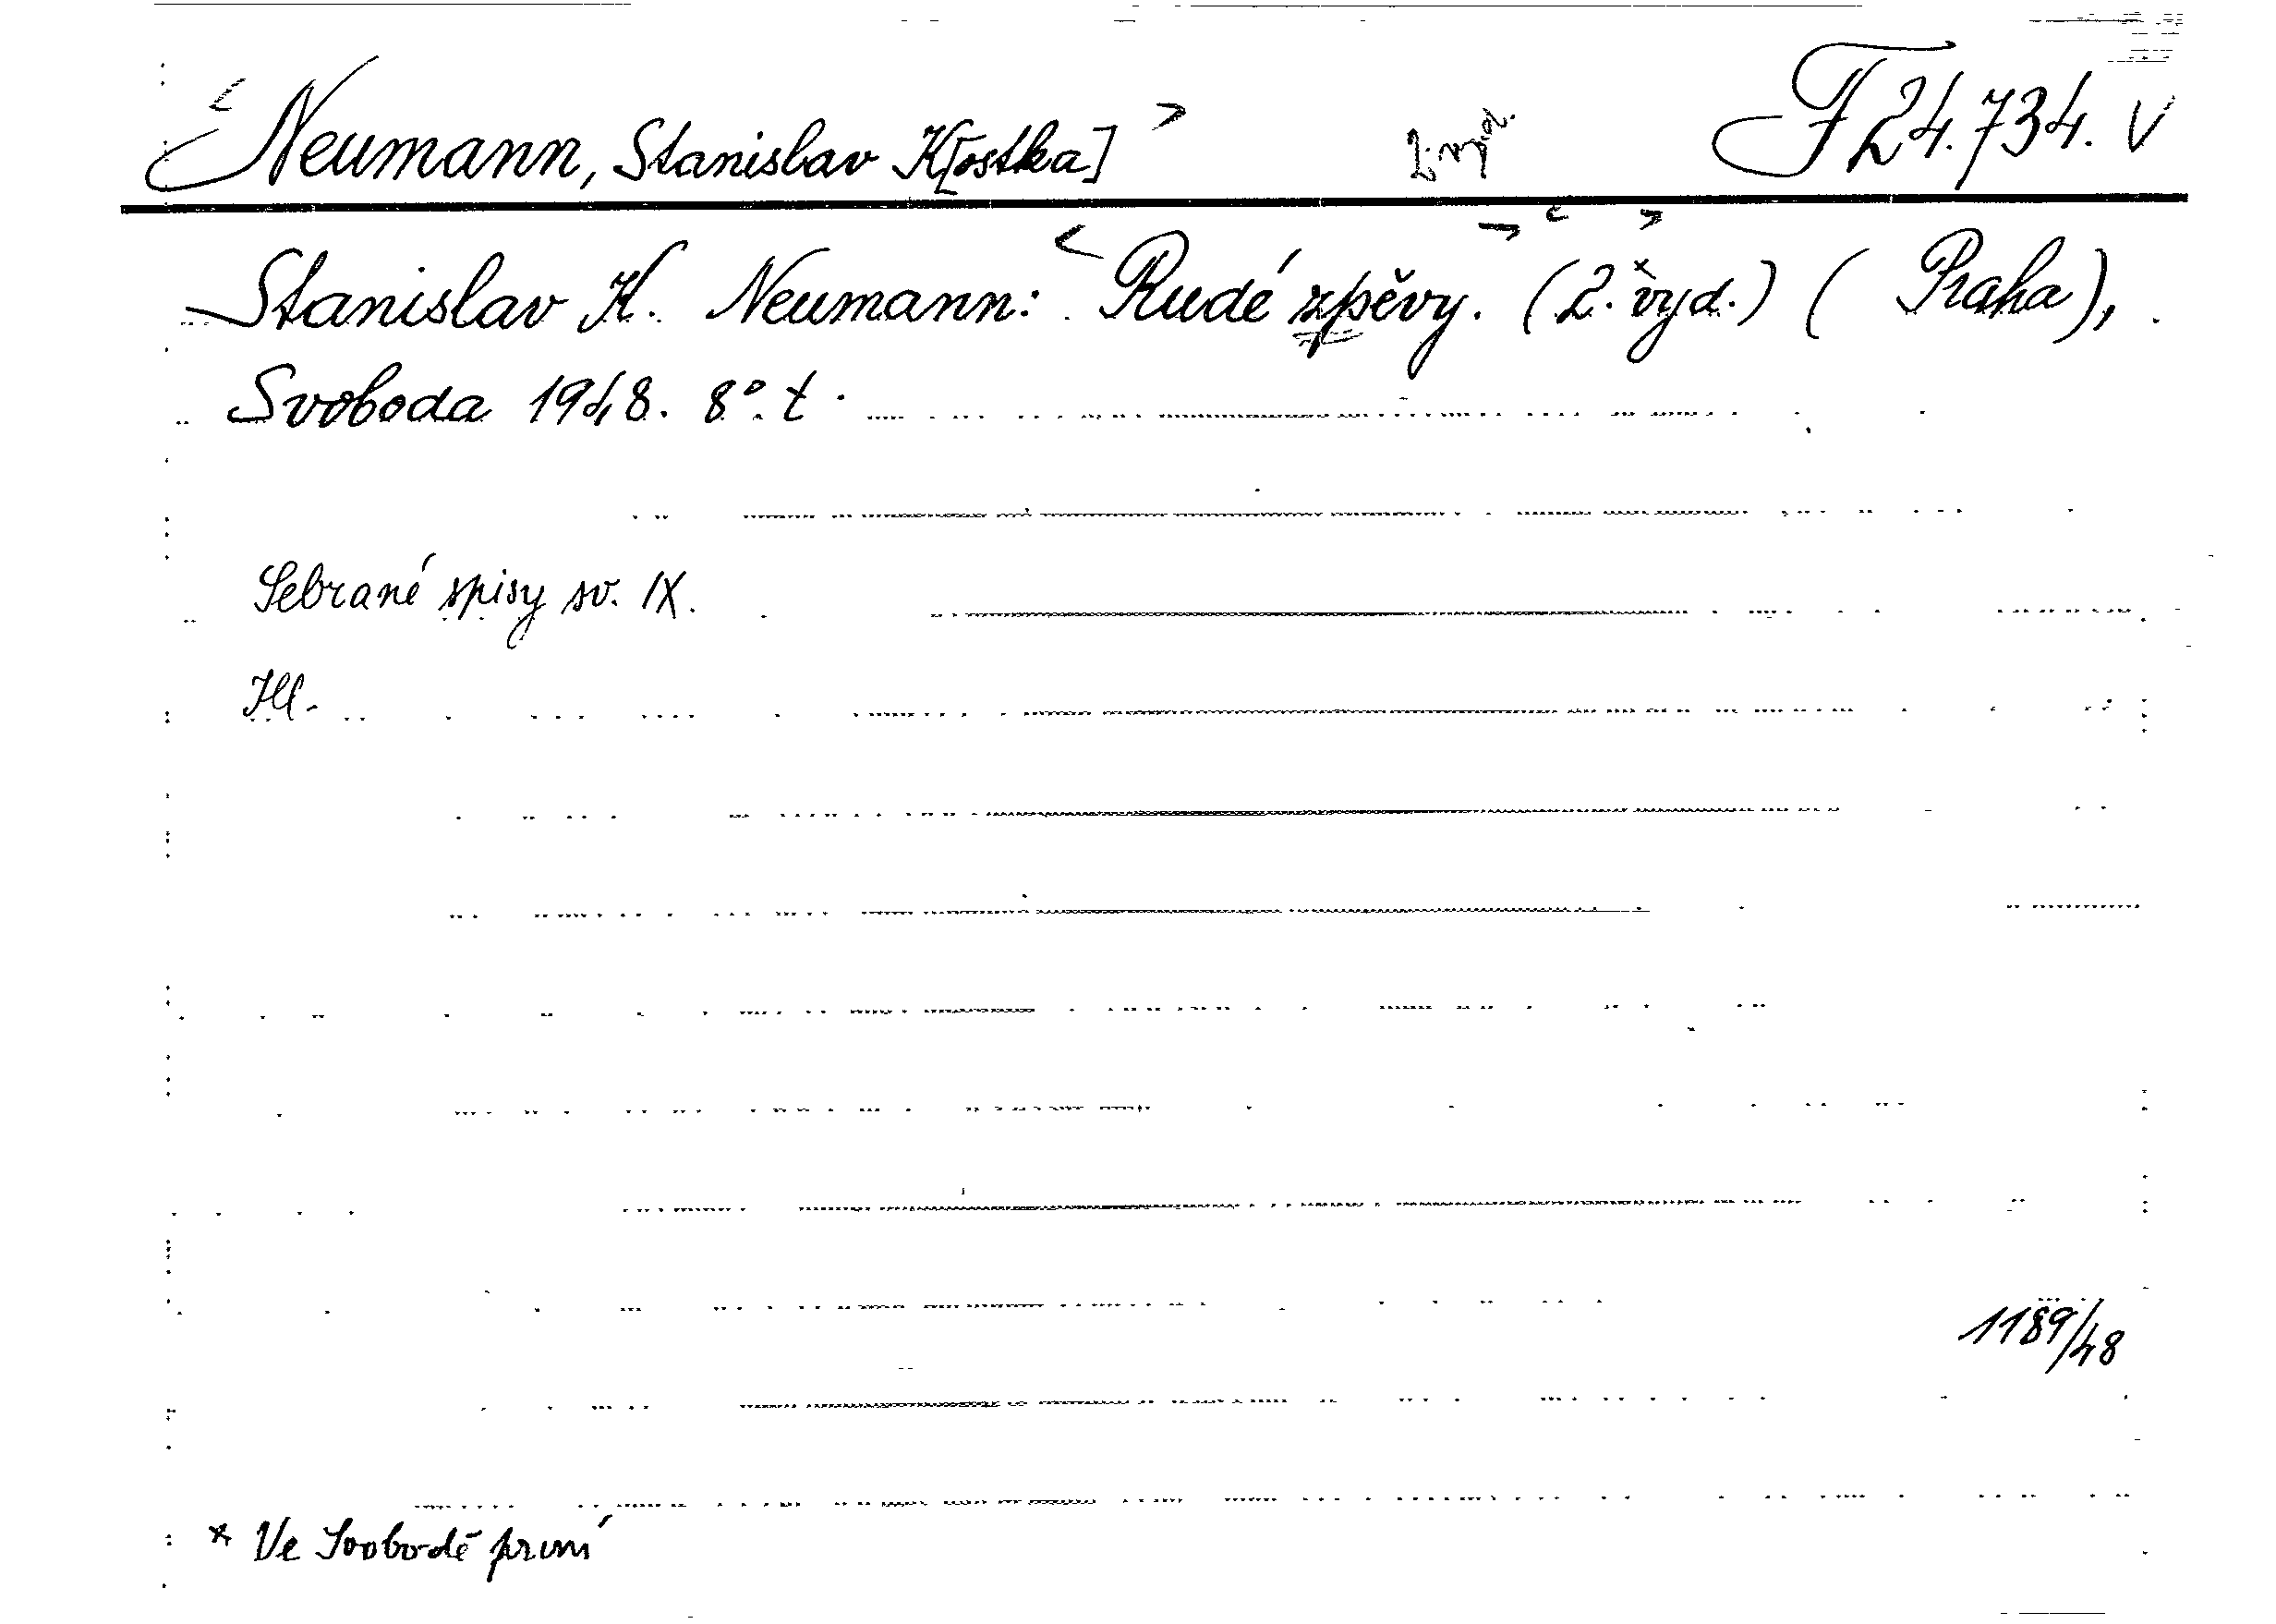 Neumann, Stanislav K[ostka] 2. vyd. F 24.734. V
Stanislav K. Neumann: Rudé zpěvy. (2.* vyd.) ( Praha),
Svoboda 1948. 8°. t.
Sebrané spisy sv. IX.
1189/48
* Ve Svobodě první